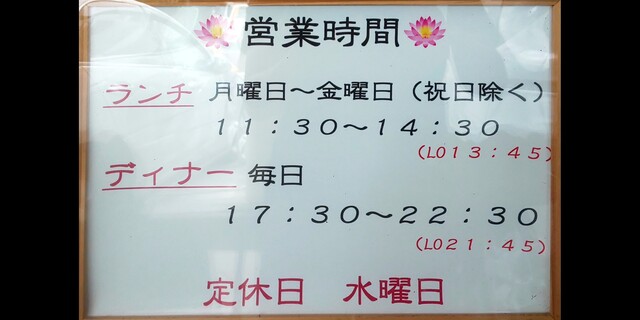 営業時間
ランチ 月曜日～金曜日（祝日除く）
11：30～14：30
（LO13：45）
ディナー 毎日
17：30～22：30
（LO21：45）
定休日 水曜日